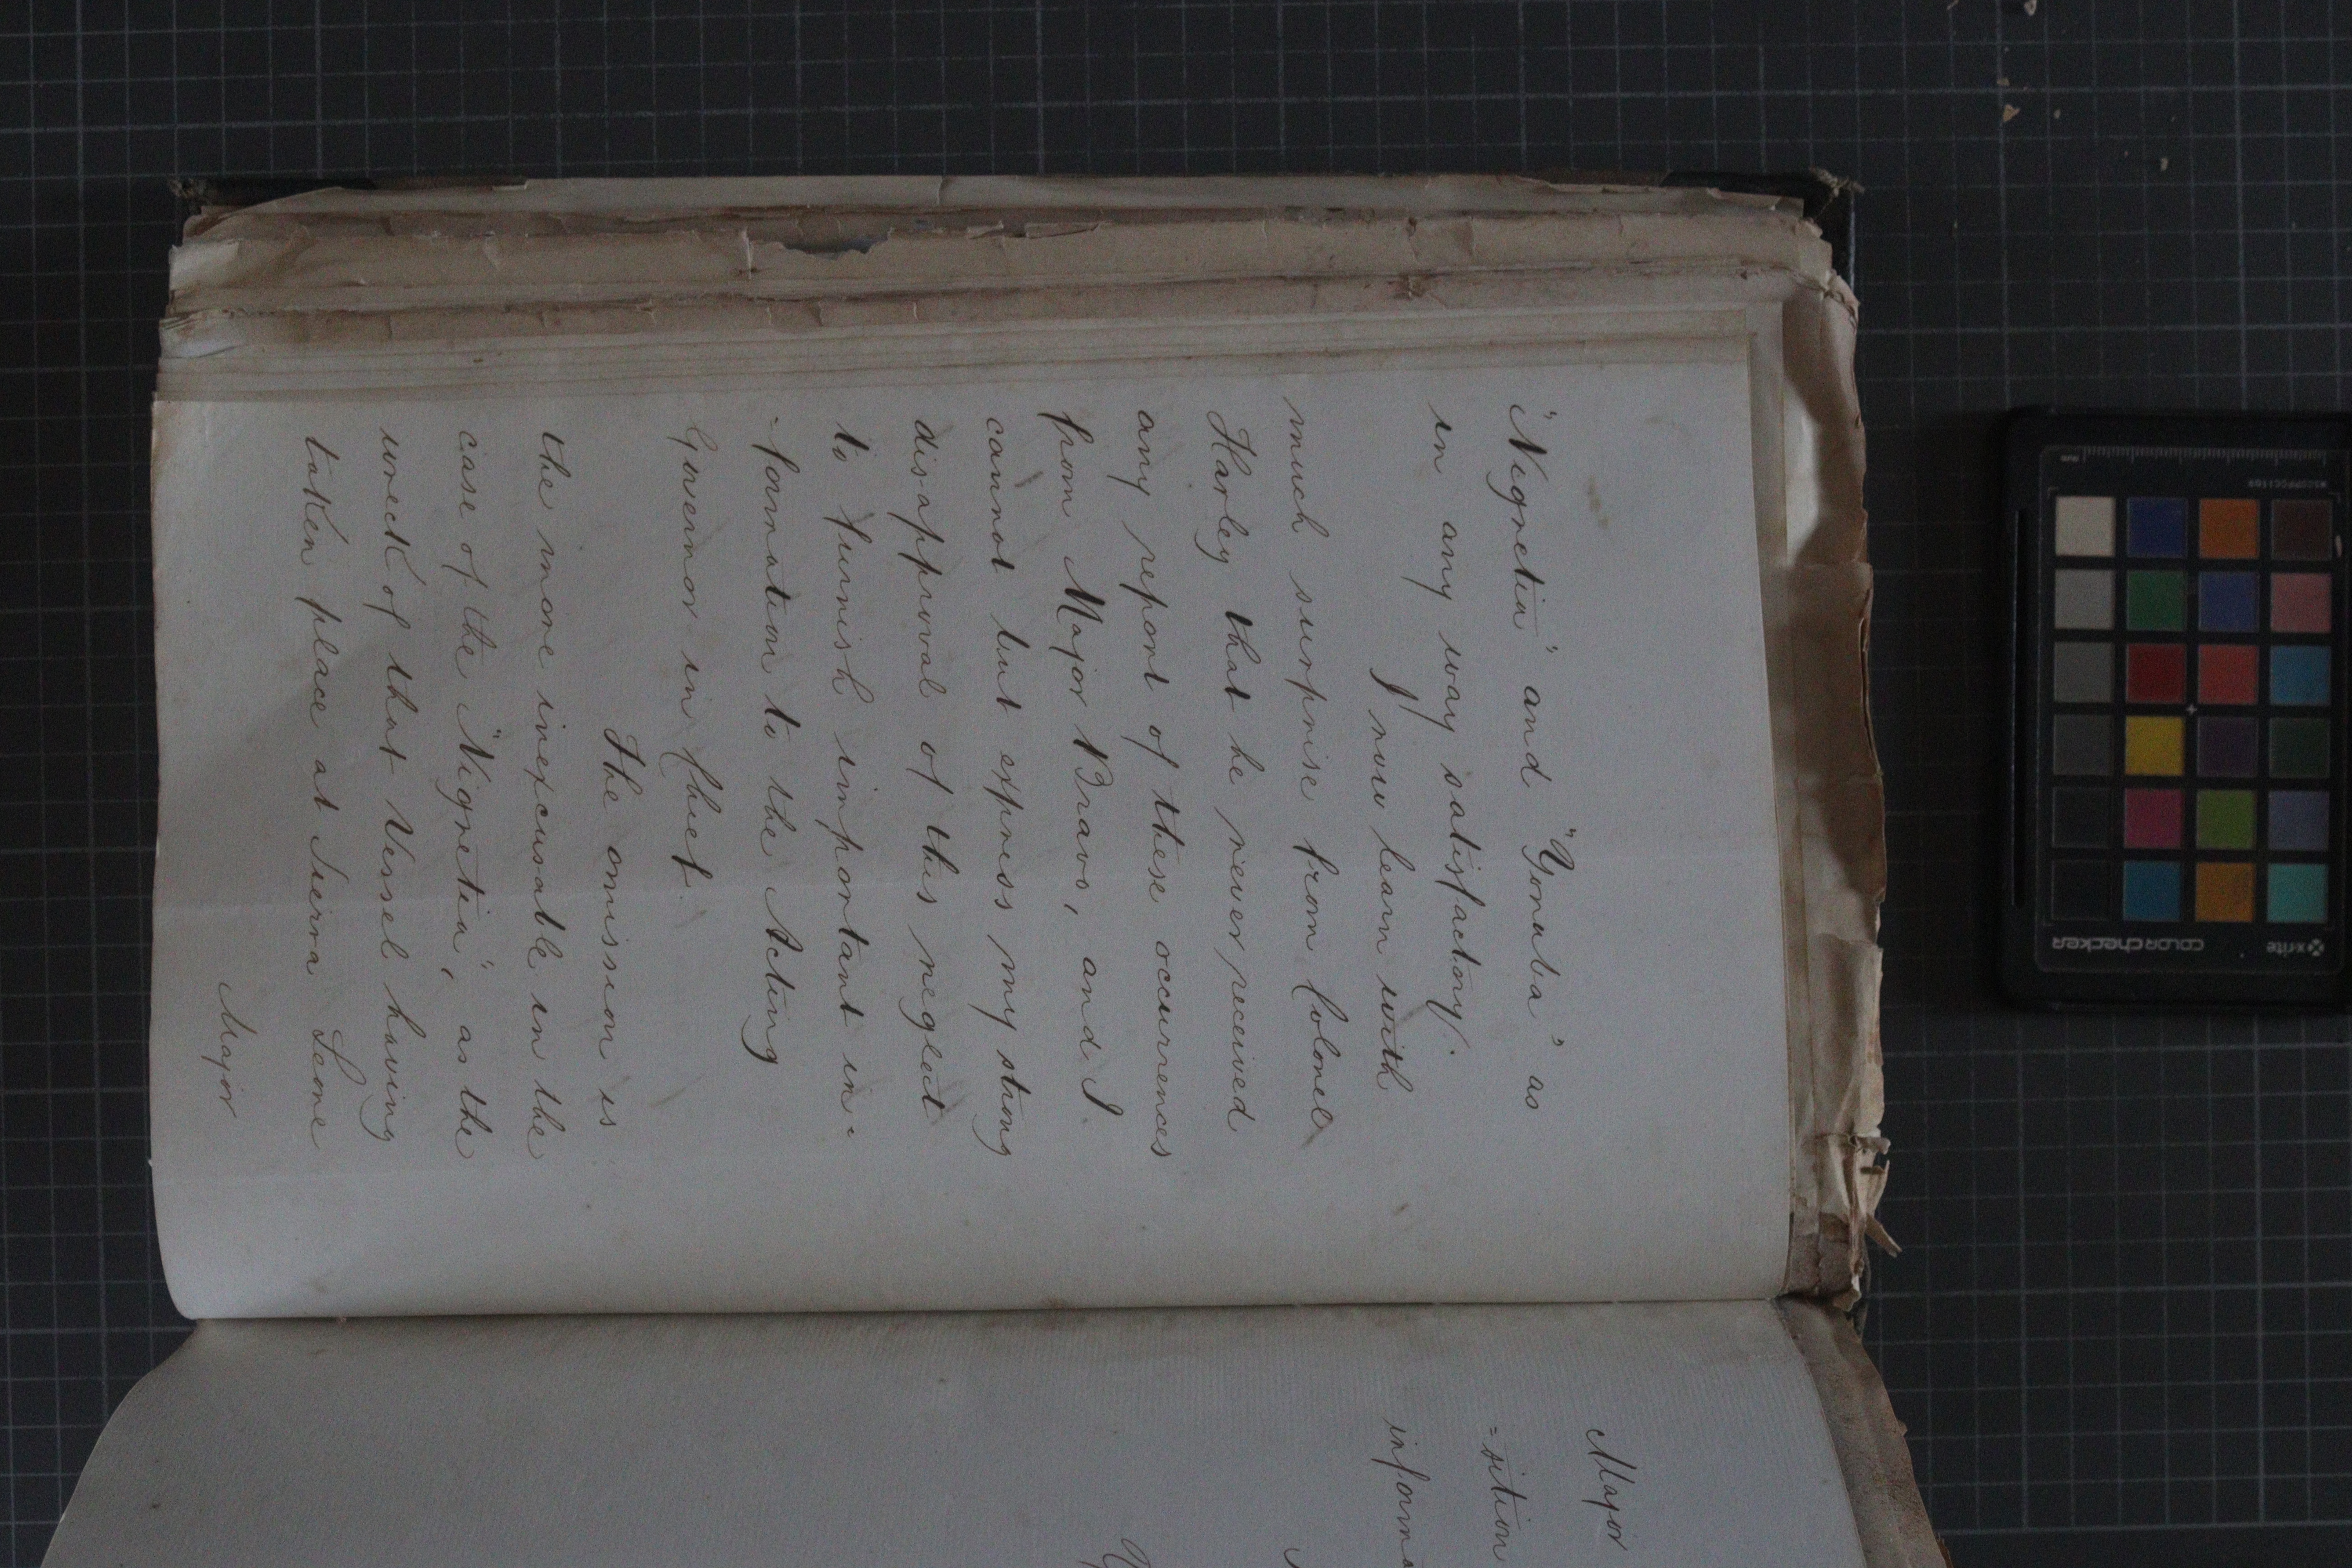 "Nigretia" and "Yoruba" as
in any way satisfactory.
I now learn with
much surprise from Colonel
Harley that he never received
any report of these occurrences
from Major Bravo, and I
cannot but express my strong
disapproval of this neglect
to furnish important in-
-formation to the Acting
Governor in Chief
The omission is
the more inexcusable in the
case of the "Nigretia", as the
wreck of that Vessel having
taken place at Sierra Leone
Major
Major
=sition
informa
x-rite
colorchecker
MSCCPPCC1169
mm